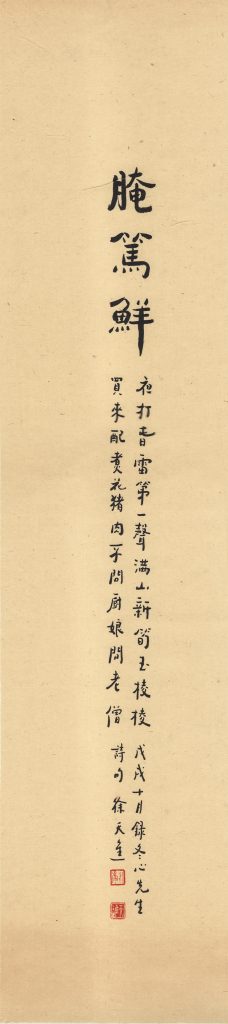 腌篤鮮
夜打春雷第一聲滿山新筍玉棱棱 戊戌十月録冬心先生
買來配煮花猪肉不問厨娘問老僧 詩句 徐天進